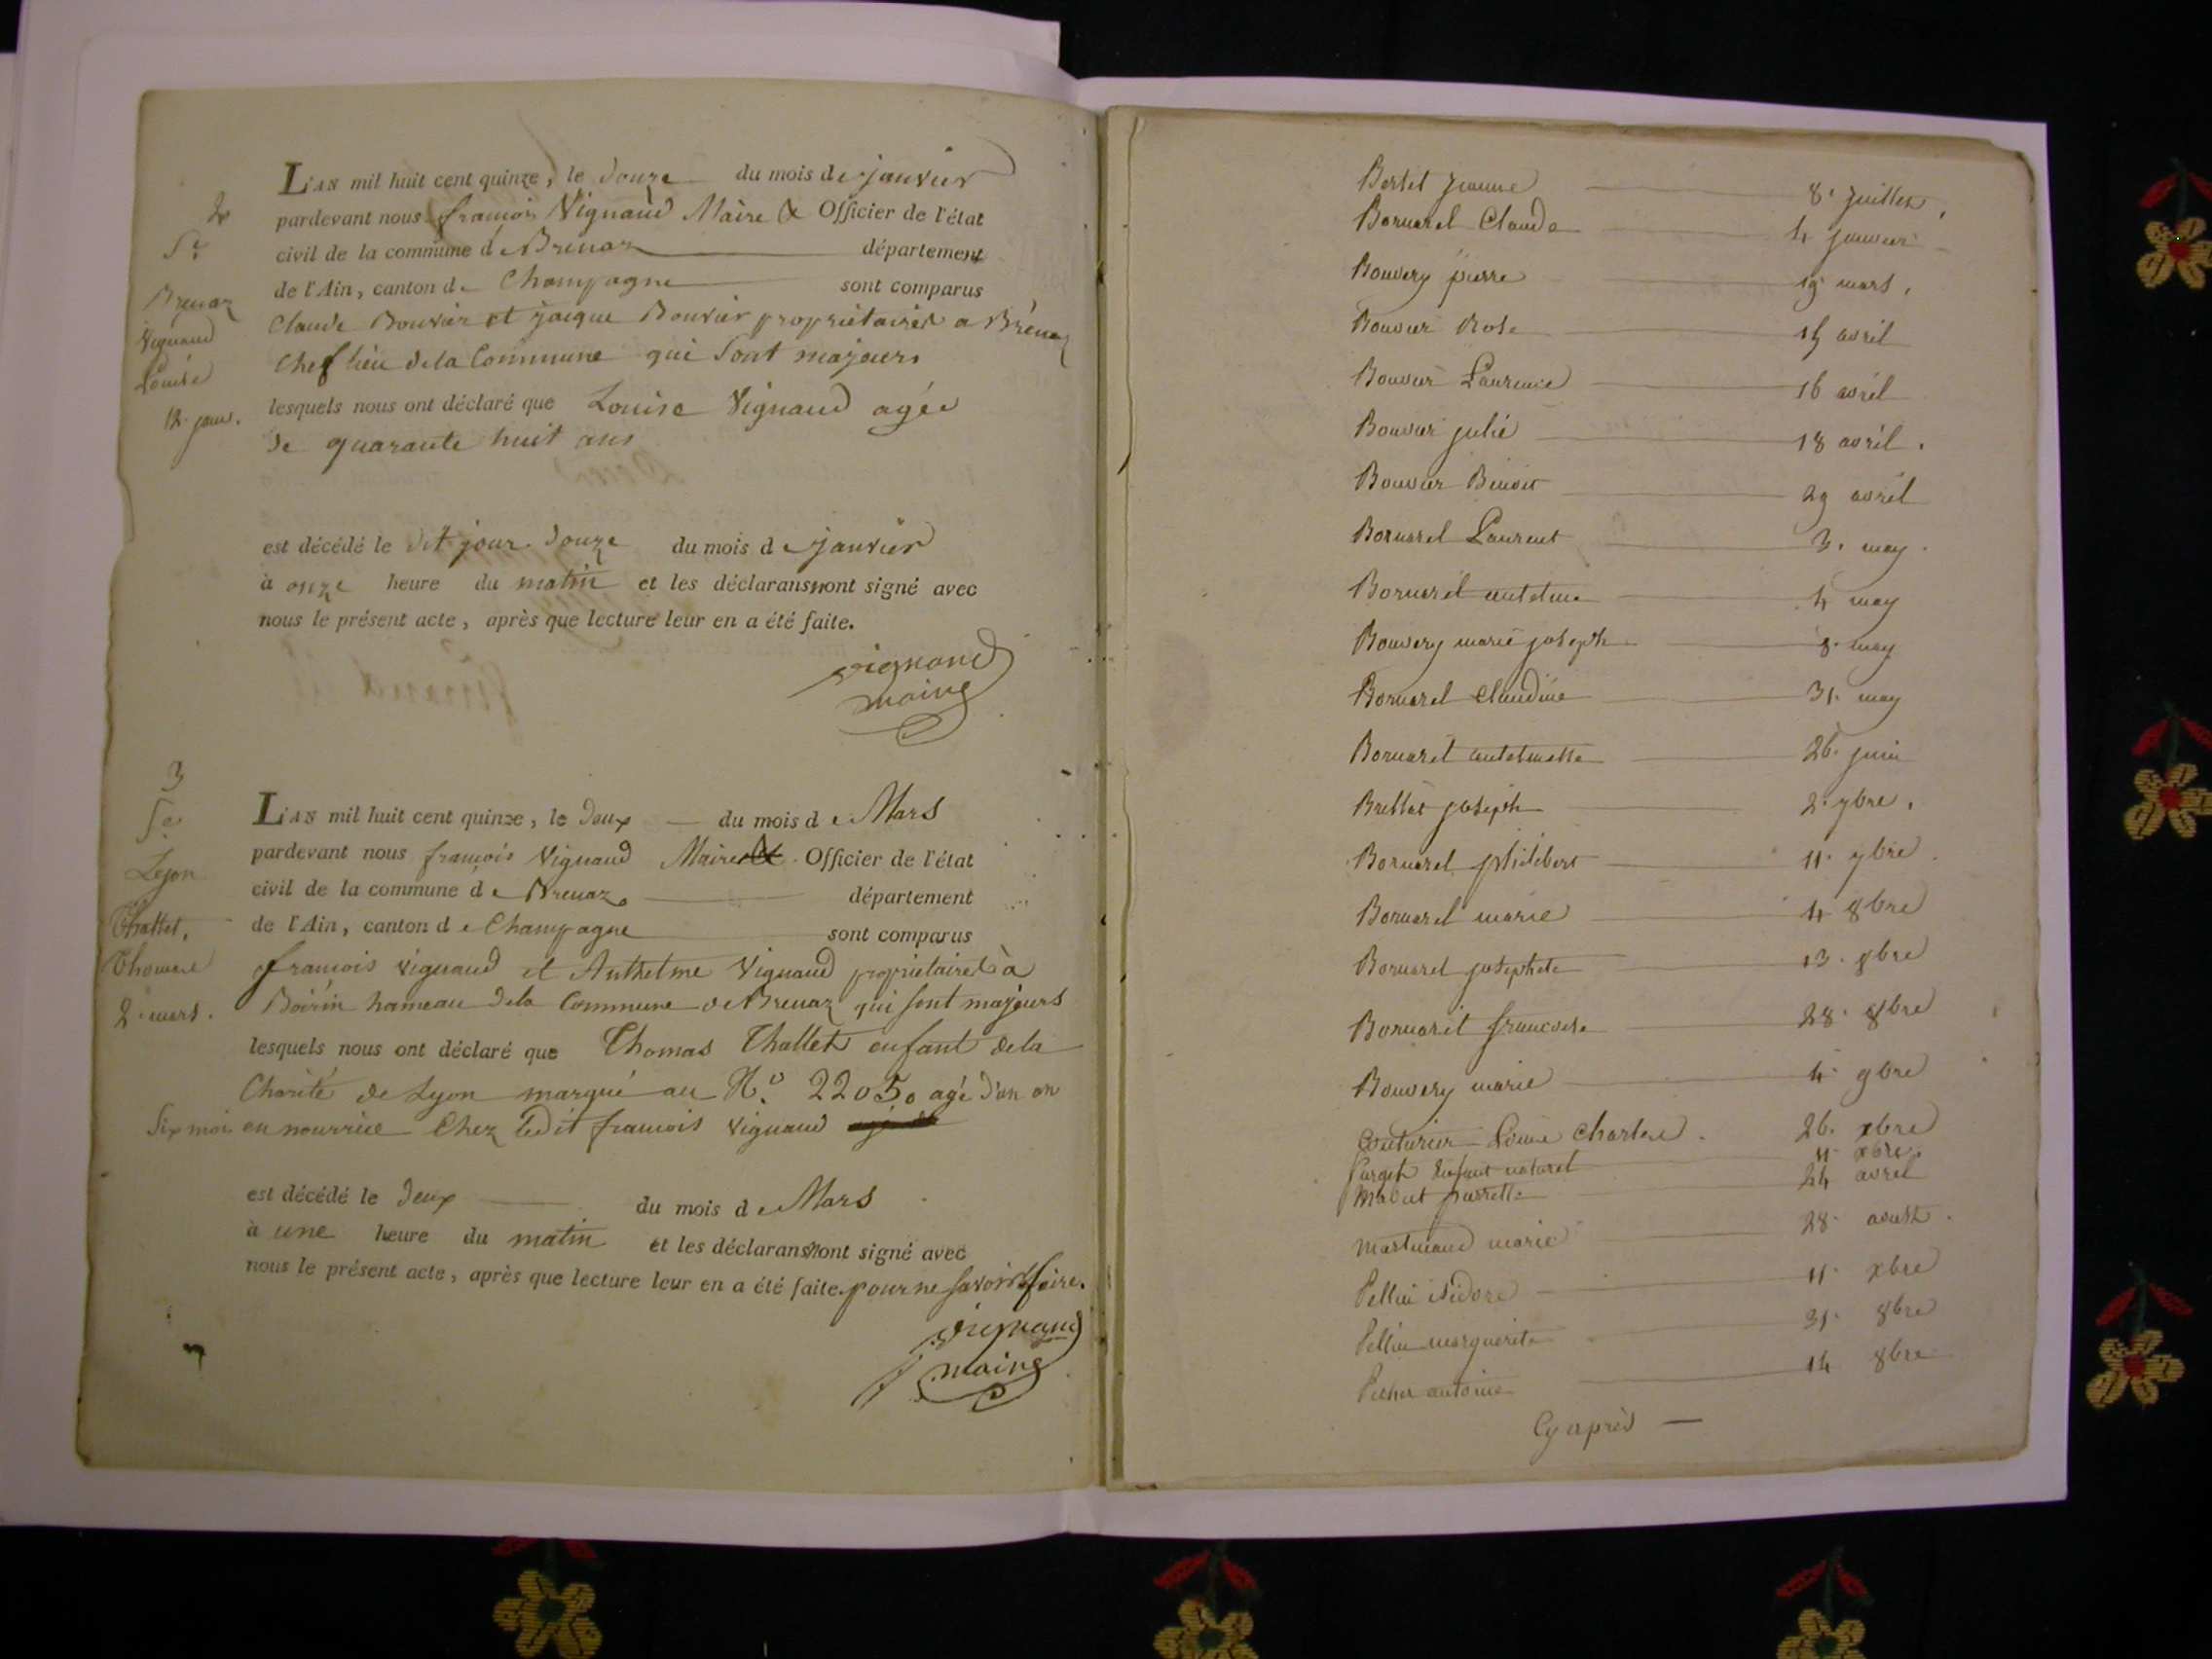 L'AN mil huit cent quinze, le douze du mois de janvier
2 pardevant nous françois Vignaud Maire & Officier de l'état
civil de la commune de Brenaz département
de l'Ain, canton de Champagne sont comparus
Brenaz
Vignaud
Louise
12. janv.
Claude Bouvier et jacque Bouvier propriétaires a Brénaz
Chef lieu de la Commune qui sont majeurs
lesquels nous ont déclaré que Louise Vignaud agée
de quarante huit ans
est décédé le dit jour douze du mois de janvier
à onze heure du matin et les déclarans nont signé avec
nous le présent acte, après que lecture leur en a été faite.
vignaud
maire
3
L'AN mil huit cent quinze, le deux du mois de Mars
pardevant nous françois Vignaud Maire & Officier de l'état
civil de la commune de Brenaz département
de l'Ain, canton de Champagne sont comparus
Lyon
Thallet,
Thomas
2. mars.
francois vignaud et Anthelme Vignaud propriétaires à
Boirin hameau dela Commune de Brenaz qui sont majeurs
lesquels nous ont déclaré que Thomas Thallet enfant dela
Charité de Lyon marqué au N.º 22050 agé d'un an
Six mois en nourrice Chez ledit francois vignaud
est décédé le deux du mois de Mars
à une heure du matin et les déclarans nont signé avec
nous le présent acte, après que lecture leur en a été faite. pour ne savoir faire.
vignaud
maire
Bertet jeanne 8. juillet.
Bornarel Claude 4 janvier
Bouvery pierre 19 mars.
Bouvier Rose 15 avril
Bouvier Laurence 16 avril
Bouvier julie 18 avril.
Bouvier Benoit 29 avril
Bornarel Laurent 3. may.
Bornarel antelme 4 may
Bouvery marie joseph 8. may
Bornarel claudine 31. may
Bornarel antelmette 26. juin
Brillat joseph 2. 7bre.
Bornarel philibert 11. 7bre.
Bornarel marie 4 8bre
Bornarel josephete 13. 8bre
Bornarel francoise 28. 8bre
Bouvery marie 4. 9bre
Couturier Louis Charles. 26. xbre
enfant naturel 11. xbre.
pierrette 24 avril
Martinand marie 28. aoust.
Pellin isidore 11. xbre
Pellin marguerite 31. 8bre
antoine 14 8bre
Cy après